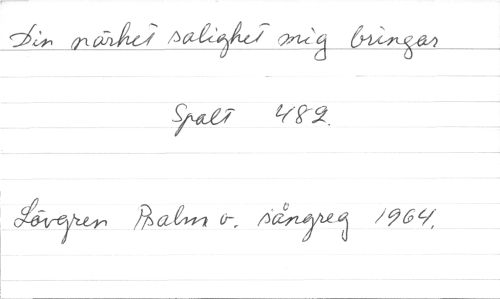 Din närhet salighet mig bringar
Spalt 482.
Lövgren Psalm o. sångreg 1964.